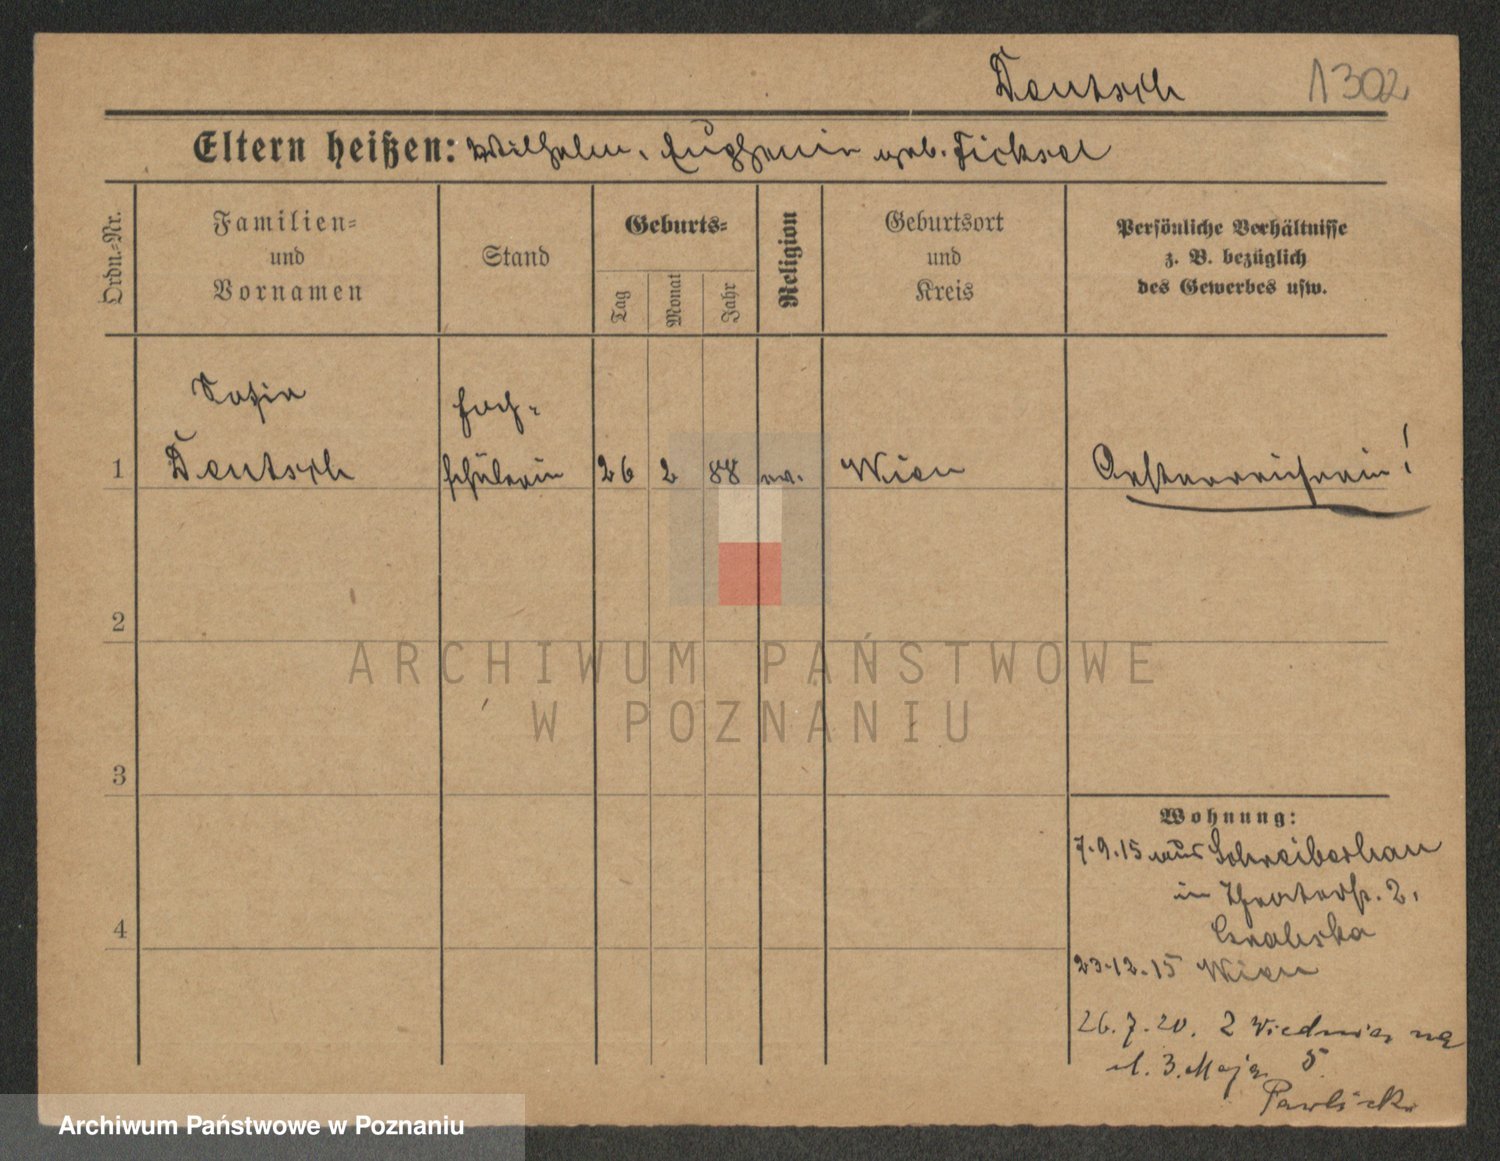 Deutsch 1302
Eltern heißen: Wilhelm, Eugenie geb. Ficksel
Ordn.-Nr.
Familien-
und
Vornamen
Stand
Geburts-
Tag
Monat
Jahr
Religion
Geburtsort
und
Kreis
Persönliche Verhältnisse
z. B. bezüglich
des Gewerbes usw.
Sofie
Hoch-
1 Deutsch schülerin 26 2 88 ev. Wien Oesterreicherin!
2
3
Wohnung:
7.9.15 aus Schreiberhau
in Theaterstr. 2,
4
23.12.15 Wien
26.7.20. Z Wiednia na
ul. 3. Maja 5
ARCHIWUM PAŃSTWOWE
W POZNANIU
Archiwum Państwowe w Poznaniu